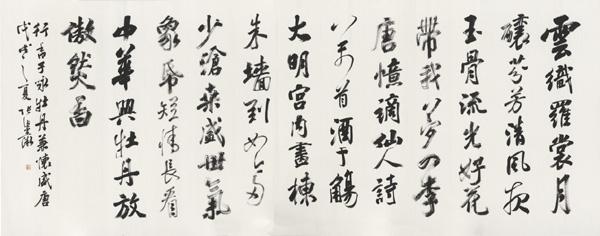 雲織羅裳月
釀芬芳清風夜
玉骨流光好花
帶我夢回李
唐憶謫仙人詩
首酒千觴
大明宮內畫棟
朱墻到如今多
少滄桑盛世氣
象紙短情長看
中華興牡丹放
傲然香
行香子咏牡丹兼懷盛唐
戊戌之夏